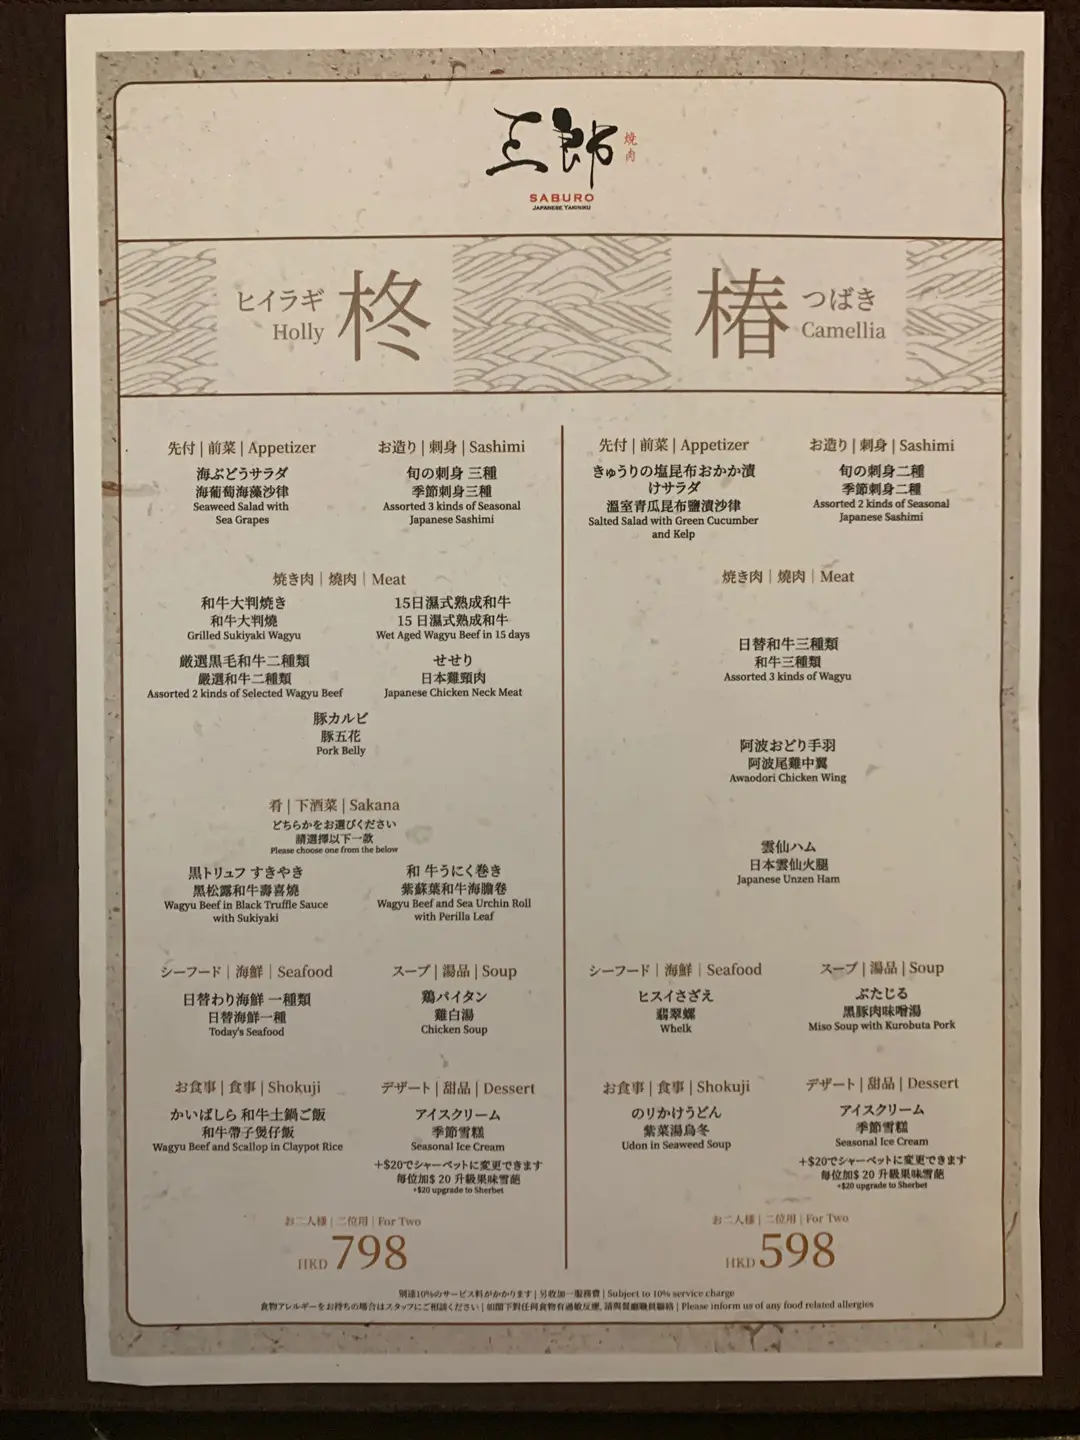 三郎
焼肉
SABURO
JAPANESE YAKINIKU
ヒイラギ
Holly
柊
椿
つばき
Camellia
先付 | 前菜 | Appetizer
海ぶどうサラダ
海葡萄海藻沙律
Seaweed Salad with
Sea Grapes
お造り | 刺身 | Sashimi
旬の刺身 三種
季節刺身三種
Assorted 3 kinds of Seasonal
Japanese Sashimi
焼き肉 | 燒肉 | Meat
和牛大判焼き
和牛大判燒
Grilled Sukiyaki Wagyu
15日濕式熟成和牛
15 日濕式熟成和牛
Wet Aged Wagyu Beef in 15 days
厳選黒毛和牛二種類
嚴選和牛二種類
Assorted 2 kinds of Selected Wagyu Beef
せせり
日本雞頸肉
Japanese Chicken Neck Meat
豚カルビ
豚五花
Pork Belly
肴 | 下酒菜 | Sakana
どちらかをお選びください
請選擇以下一款
Please choose one from the below
黒トリュフ すきやき
黑松露和牛壽喜燒
Wagyu Beef in Black Truffle Sauce
with Sukiyaki
和 牛うにく巻き
紫蘇葉和牛海膽卷
Wagyu Beef and Sea Urchin Roll
with Perilla Leaf
シーフード | 海鮮 | Seafood
日替わり海鮮 一種類
日替海鮮一種
Today's Seafood
スープ | 湯品 | Soup
鶏パイタン
雞白湯
Chicken Soup
お食事 | 食事 | Shokuji
かいばしら 和牛土鍋ご飯
和牛帶子煲仔飯
Wagyu Beef and Scallop in Claypot Rice
デザート | 甜品 | Dessert
アイスクリーム
季節雪糕
Seasonal Ice Cream
＋$20でシャーベットに変更できます
每位加$ 20 升級果味雪葩
+$20 upgrade to Sherbet
お二人様 | 二位用 | For Two
HKD 798
先付 | 前菜 | Appetizer
きゅうりの塩昆布おかか漬
けサラダ
溫室青瓜昆布鹽漬沙律
Salted Salad with Green Cucumber
and Kelp
お造り | 刺身 | Sashimi
旬の刺身二種
季節刺身二種
Assorted 2 kinds of Seasonal
Japanese Sashimi
焼き肉 | 燒肉 | Meat
日替和牛三種類
和牛三種類
Assorted 3 kinds of Wagyu
阿波おどり手羽
阿波尾雞中翼
Awaodori Chicken Wing
雲仙ハム
日本雲仙火腿
Japanese Unzen Ham
シーフード | 海鮮 | Seafood
ヒスイさざえ
翡翠螺
Whelk
スープ | 湯品 | Soup
ぶたじる
黑豚肉味噌湯
Miso Soup with Kurobuta Pork
お食事 | 食事 | Shokuji
のリかけうどん
紫菜湯烏冬
Udon in Seaweed Soup
デザート | 甜品 | Dessert
アイスクリーム
季節雪糕
Seasonal Ice Cream
＋$20でシャーベットに変更できます
每位加$ 20 升級果味雪葩
+$20 upgrade to Sherbet
お二人様 | 二位用 | For Two
HKD 598
別途10%のサービス料がかかります | 另收加一服務費 | Subject to 10% service charge
食物アレルギーをお持ちの場合はスタッフにご相談ください | 如閣下對任何食物有過敏反應, 請與餐廳職員聯絡 | Please inform us of any food related allergies